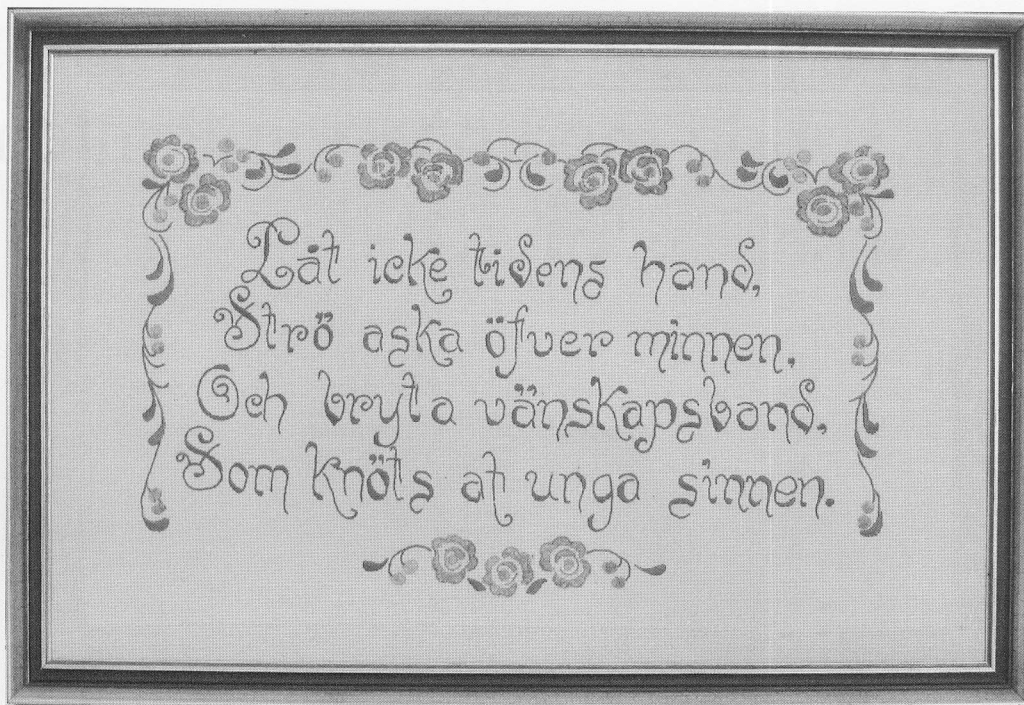 Låt icke tidens hand,
Strö aska öfver minnen,
Och bryta vänskapsband,
Som knöts at unga sinnen.